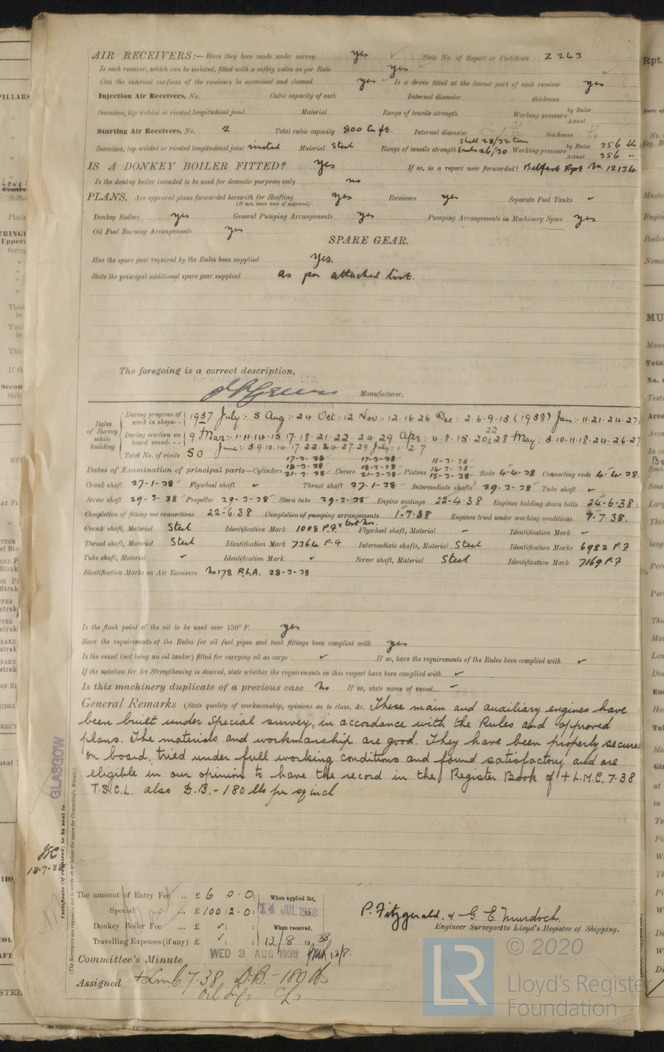 AIR RECEIVERS:—Have they been made under survey yes State No. of Report or Certificate 2243
Is each receiver, which can be isolated, fitted with a safety valve as per Rule yes
Can the internal surfaces of the receivers be examined and cleaned yes Is a drain fitted at the lowest part of each receiver yes
Injection Air Receivers, No. Cubic capacity of each Internal diameter thickness
Seamless, lap welded or riveted longitudinal joint Material Range of tensile strength Working pressure by Rules Actual
Starting Air Receivers, No. 2 Total cubic capacity 800 Cu ft. Internal diameter thickness
Seamless, lap welded or riveted longitudinal joint riveted Material Steel Range of tensile strength Shell 28/32 tons Ends 26/30 Working pressure by Rules 356 lb Actual 356 "
IS A DONKEY BOILER FITTED? yes If so, is a report now forwarded? Belfast Rpt No 12134
Is the donkey boiler intended to be used for domestic purposes only no
PLANS. Are approved plans forwarded herewith for Shafting yes Receivers yes Separate Fuel Tanks
(If not, state date of approval)
Donkey Boilers yes General Pumping Arrangements yes Pumping Arrangements in Machinery Space yes
Oil Fuel Burning Arrangements yes
SPARE GEAR.
Has the spare gear required by the Rules been supplied yes.
State the principal additional spare gear supplied as per attached list.
The foregoing is a correct description,
Manufacturer.
Dates of Survey while building
During progress of work in shops - - 1937 July:- 5 Aug:- 24 Oct:- 12 Nov:- 12.16.26 Dec:- 2.6.9.13 (1938) Jan:- 11.21.24.27
During erection on board vessel - - - 9 Mar:- 1.11.14.15.17.18.21.22.24.29 Apr:- 4.8.15.20.22.28 May:- 3.10.11.18.24.26.27
Total No. of visits 50 June:- 3.9.10.14.17.22.24.27.29 July:- 1.2.7
Dates of Examination of principal parts—Cylinders 17-3-38 18-3-38 21-3-38 Covers 17-3-38 18-3-38 21-3-38 Pistons 11-3-38 14-3-38 15-3-38 Rods 4-4-38 Connecting rods 4-4-38
Crank shaft 27-1-38 Flywheel shaft Thrust shaft 27-1-38 Intermediate shafts 29-3-38 Tube shaft
Screw shaft 29-3-38 Propeller 29-3-38 Stern tube 29-3-38 Engine seatings 22-4-38 Engines holding down bolts 24-6-38
Completion of fitting sea connections 22-6-38 Completion of pumping arrangements 1-7-38 Engines tried under working conditions 7-7-38.
Crank shaft, Material Steel Identification Mark 1008 P.F. Flywheel shaft, Material Identification Mark
Thrust shaft, Material Steel Identification Mark 7264 P.F Intermediate shafts, Material Steel Identification Marks 6982 P.F
Tube shaft, Material Identification Mark Screw shaft, Material Steel Identification Mark 7169 P.F
Identification Marks on Air Receivers No 178 R.L.A. 28-3-38
Is the flash point of the oil to be used over 150° F. yes
Have the requirements of the Rules for oil fuel pipes and tank fittings been complied with yes
Is the vessel (not being an oil tanker) fitted for carrying oil as cargo If so, have the requirements of the Rules been complied with
If the notation for Ice Strengthening is desired, state whether the requirements in this respect have been complied with
Is this machinery duplicate of a previous case No If so, state name of vessel
General Remarks (State quality of workmanship, opinions as to class, &c. These main and auxiliary engines have
been built under Special survey, in accordance with the Rules and approved
plans. The materials and workmanship are good. They have been properly secured
on board, tried under full working conditions and found satisfactory and are
eligible in our opinion to have the record in the Register Book of + L.M.C. 7.38
T.S.C.L. also D.B.- 180 lbs per sq inch
GLASGOW
13.7.38
The amount of Entry Fee .. £ 6 0 0
Special .. .. £ 100 2 0
Donkey Boiler Fee .. £
Travelling Expenses (if any) £
When applied for,
14 JUL 1938
When received,
12/8 1938
P. Fitzgerald. & G. E. Murdoch.
Engineer Surveyors to Lloyd's Register of Shipping.
Committee's Minute WED 3 AUG 1938
Assigned + Lmc 7.38 D.B.- 180 lb
© 2020
Lloyd's Register
Foundation
LR